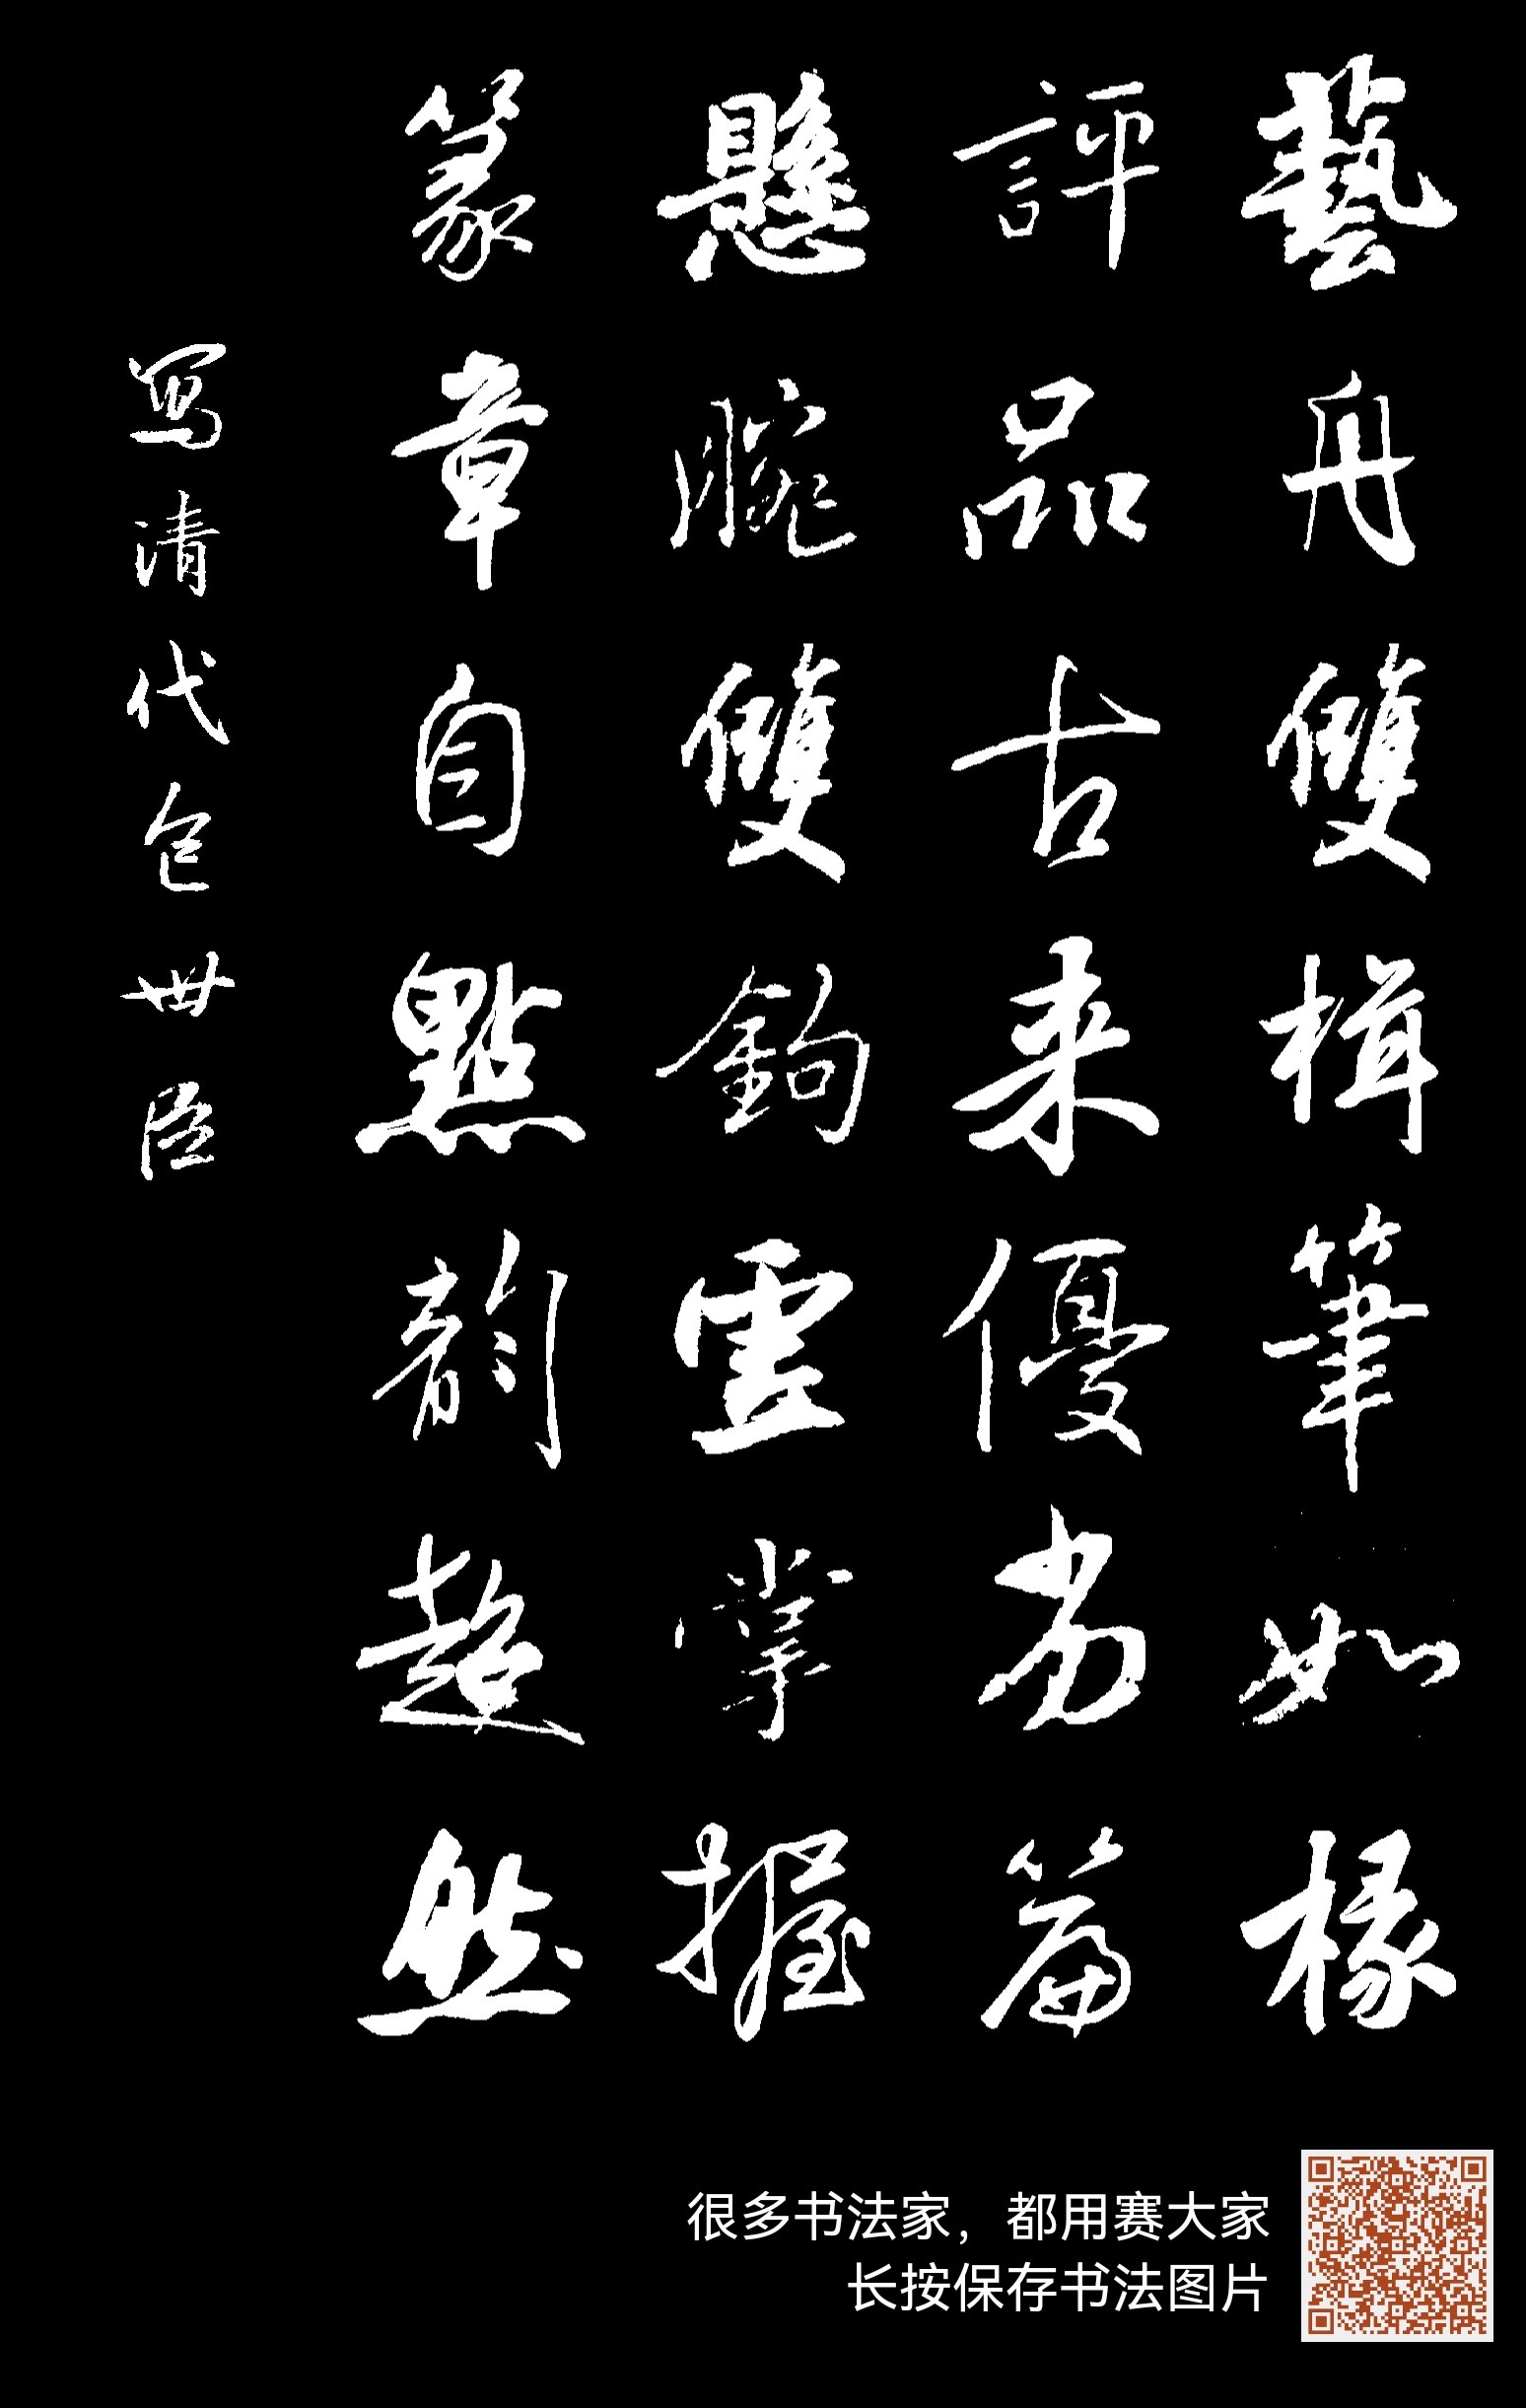 藝舟雙楫筆如椽
評品古来優劣篇
懸腕雙鉤虛掌握
篆章自點韵超然
寫清代包世臣
很多书法家，都用赛大家
长按保存书法图片